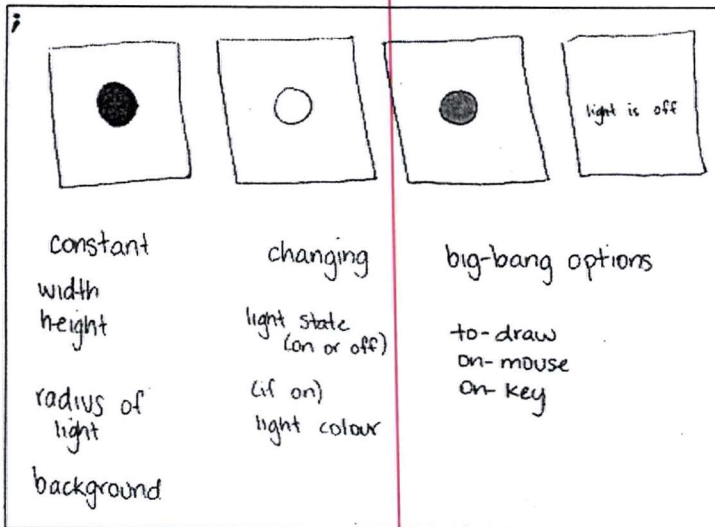 ;
light is off
constant
width
height
radius of
light
background
changing
light state
(on or off)
(if on)
light colour
big-bang options
to-draw
on-mouse
on-key